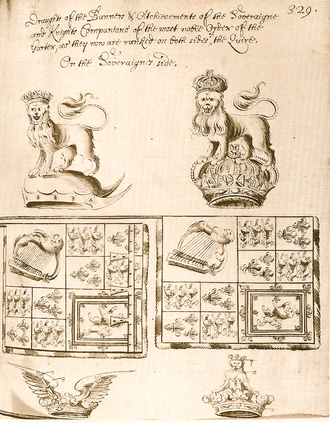 329.
Draughts of the Banners & Atchievements of the Soveraigne
and Knights Companions of the most noble Order of the
Garter, as they now are ranked on both sides the Quire.
On the Soveraign's side.